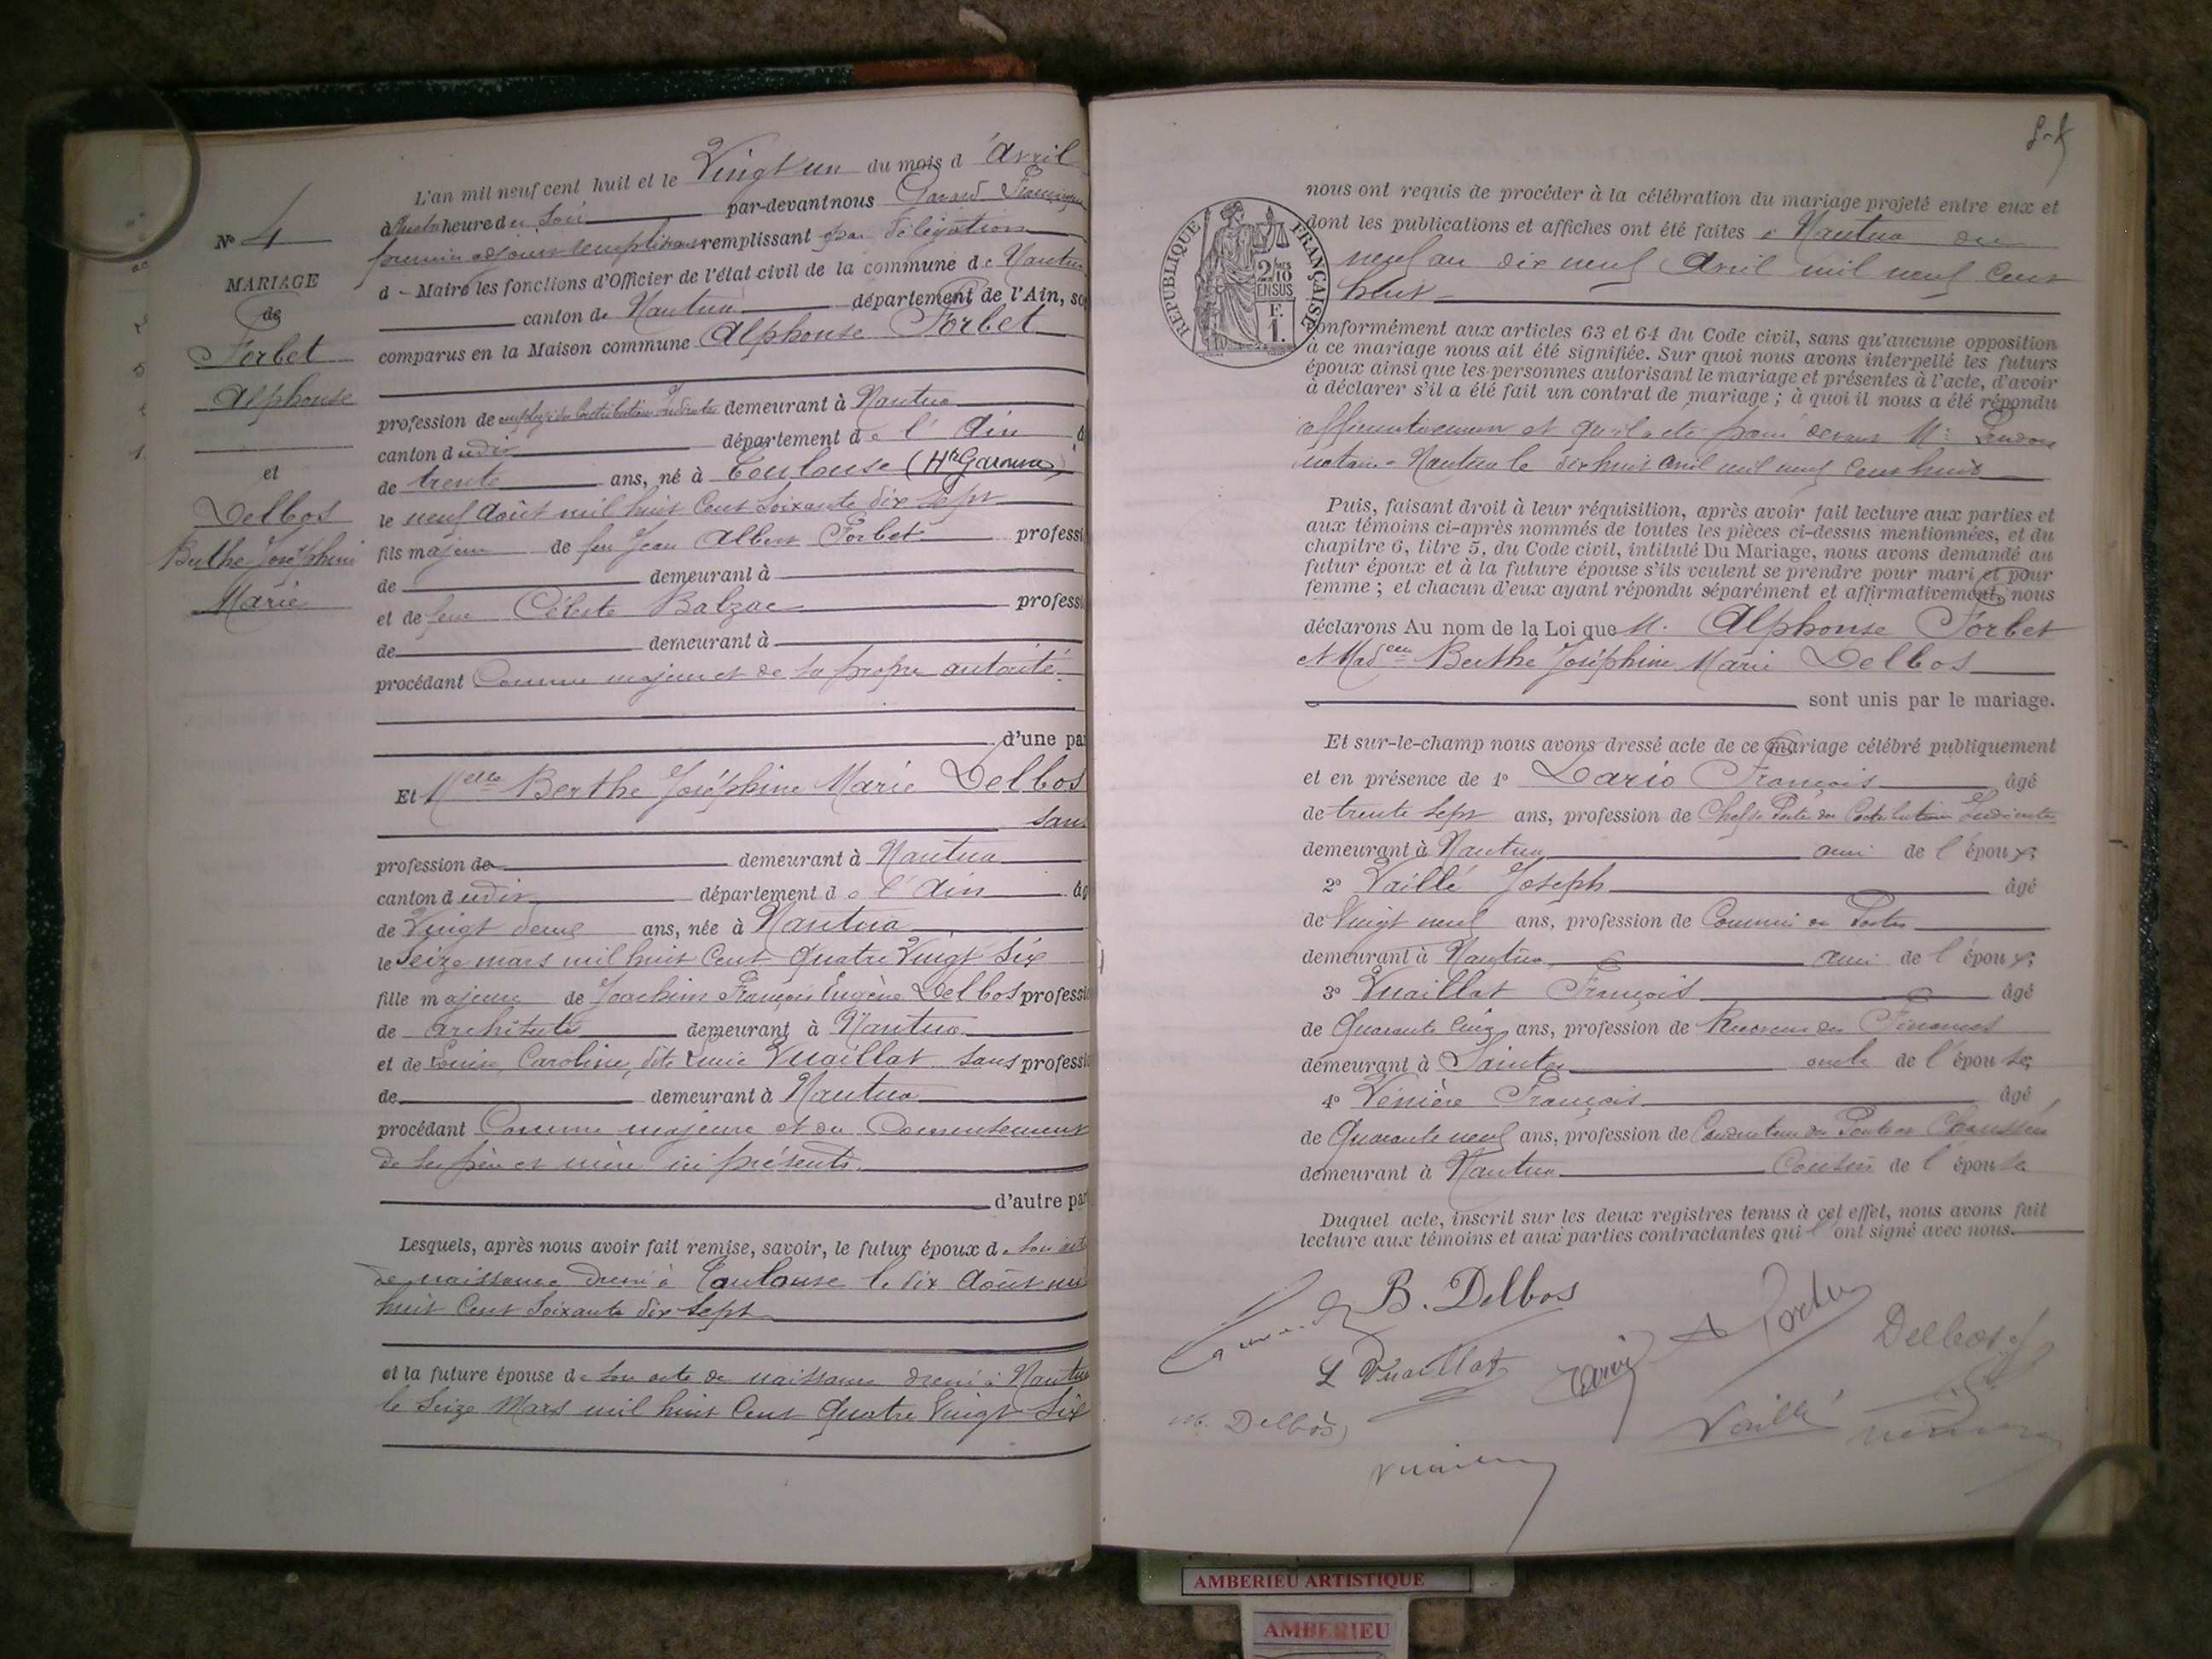 L'an mil neuf cent huit et le Vingt un du mois d'Avril
à quatre heure du Soir par-devant nous Gavard François
premier adjoint remplissant par délégation
d - Maire les fonctions d'Officier de l'état civil de la commune de Nantua
canton de Nantua département de l'Ain, so
comparus en la Maison commune Alphonse Forbet
profession de employé des Contributions Indirectes demeurant à Nantua
canton dudit département de l'Ain â
de trente ans, né à Toulouse (Hte Garonne)
le neuf Août mil huit Cent Soixante dix Sept
fils majeur de feu Jean Albert Forbet professi
de demeurant à
et de feue Céleste Balzac professi
de demeurant à
procédant Comme majeur et de sa propre autorité
d'une pa
Et Melle Berthe Joséphine Marie Delbos
sans
profession de demeurant à Nantua
canton dudit département de l'Ain âg
de Vingt deux ans, née à Nantua
le Seize mars mil huit Cent Quatre Vingt Six
fille majeure de Joachim François Eugène Delbos professi
de architecte demeurant à Nantua
et de Louise Caroline, dite Lucie Vuaillat sans professi
de demeurant à Nantua
procédant Comme majeure et du Consentement
de ses père et mère ici présents.
d'autre pa
Lesquels, après nous avoir fait remise, savoir, le futur époux de son acte
de naissance dressé à Toulouse le dix Août mil
huit Cent Soixante dix Sept
et la future épouse de son acte de naissance dressé à Nantua
le Seize Mars mil huit Cent Quatre Vingt Six
No 4
MARIAGE
de
Forbet
Alphonse
et
Delbos
Berthe Joséphine
Marie
nous ont requis de procéder à la célébration du mariage projeté entre eux et
dont les publications et affiches ont été faites à Nantua du
neuf au dix neuf Avril mil neuf Cent
huit
RÉPUBLIQUE FRANÇAISE
2/10 MES
EN SUS
F.
1.
Conformément aux articles 63 et 64 du Code civil, sans qu'aucune opposition
à ce mariage nous ait été signifiée. Sur quoi nous avons interpellé les futurs
époux ainsi que les personnes autorisant le mariage et présentes à l'acte, d'avoir
à déclarer s'il a été fait un contrat de mariage ; à quoi il nous a été répondu
affirmativement et qu'il a été passé devant Me
notaire à Nantua le dix huit Avril mil neuf Cent huit
Puis, faisant droit à leur réquisition, après avoir fait lecture aux parties et
aux témoins ci-après nommés de toutes les pièces ci-dessus mentionnées, et du
chapitre 6, titre 5, du Code civil, intitulé Du Mariage, nous avons demandé au
futur époux et à la future épouse s'ils veulent se prendre pour mari et pour
femme ; et chacun d'eux ayant répondu séparément et affirmativement, nous
déclarons Au nom de la Loi que M. Alphonse Forbet
et Madelle Berthe Joséphine Marie Delbos
sont unis par le mariage.
Et sur-le-champ nous avons dressé acte de ce mariage célébré publiquement
et en présence de 1o Dario François âgé
de trente Sept ans, profession de Chef de Poste des Contributions Indirectes
demeurant à Nantua ami de l'époux;
2o Vaillé Joseph âgé
de Vingt neuf ans, profession de Commis des Postes
demeurant à Nantua ami de l'époux;
3o Vuaillat François âgé
de Quarante Cinq ans, profession de Receveur des Finances
demeurant à Saintes oncle de l'épouse;
4o Vénière François âgé
de Quarante neuf ans, profession de Conducteur des Ponts et Chaussées
demeurant à Nantua Cousin de l'épouse
Duquel acte, inscrit sur les deux registres tenus à cet effet, nous avons fait
lecture aux témoins et aux parties contractantes qui l'ont signé avec nous.
B. Delbos
A Forbet
Delbos
L Vuaillat
Dario
M. Delbos
Vaillé
AMBERIEU ARTISTIQUE
AMBERIEU